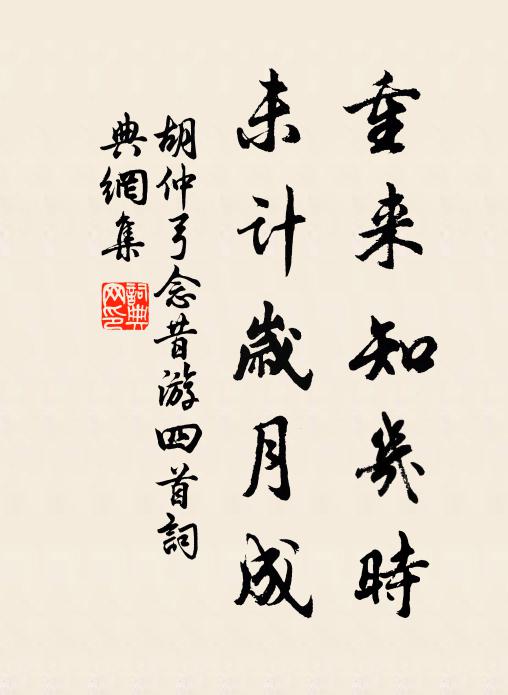 重来知幾時
未计歲月成
胡仲弓念昔游四首詞
典網集
詞典网印